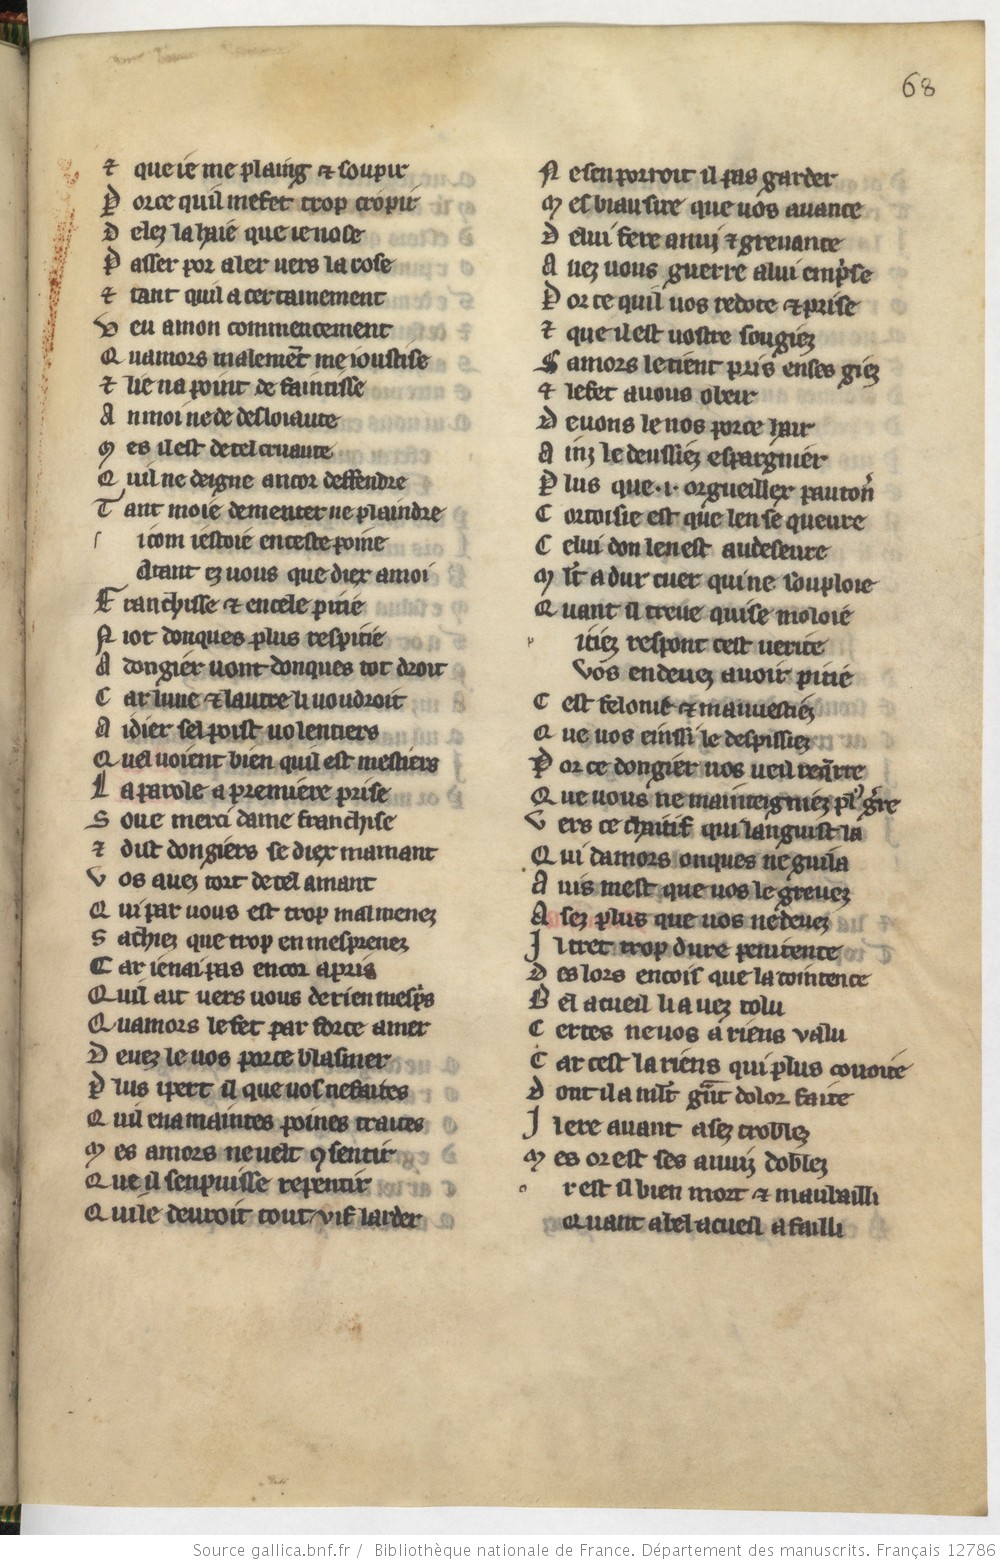 68
⁊ que ie me plaing ⁊ soupir
P orce quil mefet trop cropir
D elez la haie que ie nose
P asser por aler vers la rose
⁊ tant quil a certainement
V eu amon commencement
Q uamors malemēt me ioustise
⁊ lie na point de faintise
A nmoi ne de desloiaute
M es il est de tel cruaute
Q uil ne deigne ancor deffendre
T ant moie dementer ne plaindre
icom iestoie en ceste poine
Atant ez vous que diex amoi
F ranchisse ⁊ encele pitié
N iot donques plus respitie
A dongier vont donques tot droit
C ar lune ⁊ lautre li voudroit
A idier sel poist volentiers
Q uel voient bien quil est mestiers
L a parole a premiere prise
S oue merci dame franchise
⁊ dist dongiers se diex mamant
V os auez tort de tel amant
Q ui par vous est trop mal menez
S achiez que trop en mesprenez
C ar ienai pas encor apris
Q uil ait vers vous de rien mesp̾s
Q uamors le fet par force amer
D euez le vos porce blasmer
P lus ipert il que vos ne faites
Q uil en a maintes poines traites
M es amors ne velt ꝯsentir
Q ue il senpuisse repentir
Q uile deuroit tout vif larder
N e sen porroit il pas garder
M es biau sire que vos auance
D elui fere anui ⁊ greuance
A uez vous guerre a lui emp̾se
P or ce quil vos redote ⁊ prise
⁊ que il est vostre sougiez
S amors le tient pris en ses giez
⁊ lefet a vous obeir
D euons le nos porce hair
A inz le deussiez espargnier
P lus que ·i· orgueillex pauton̾
C ortoisie est que len se queure
C elui don len est audeseure
M lt̾ a dur cuer qui ne souploie
Q uant il treue qui se moloie
itiez respont cest verite
Vos en deuez auoir pitié
C est felonie ⁊ mauuestiez
Q ue vos einssi le despissiez
P or ce dongier vos veil req̄rre
Q ue vous ne mainteigniez pl᷒ g̾re
V ers ce chaitif qui languist la
Q ui damors onques ne guila
A uis mest que vos le greuez
A sez plus que vos ne deuez
I l tret trop dure penitence
D es lors encois que la cointence
B el acueil li auez tolu
C ertes ne vos a riens valu
C ar cest la riens qui plus couoite
D ont il a mlt̾ g̅nt dolor faite
I l ere auant asez troblez
M es or est ses anuiz doblez
r est il bien mort ⁊ maubailli
Quant a bel acueil a failli
Source gallica.bnf.fr / Bibliothèque nationale de France. Département des manuscrits. Français 12786